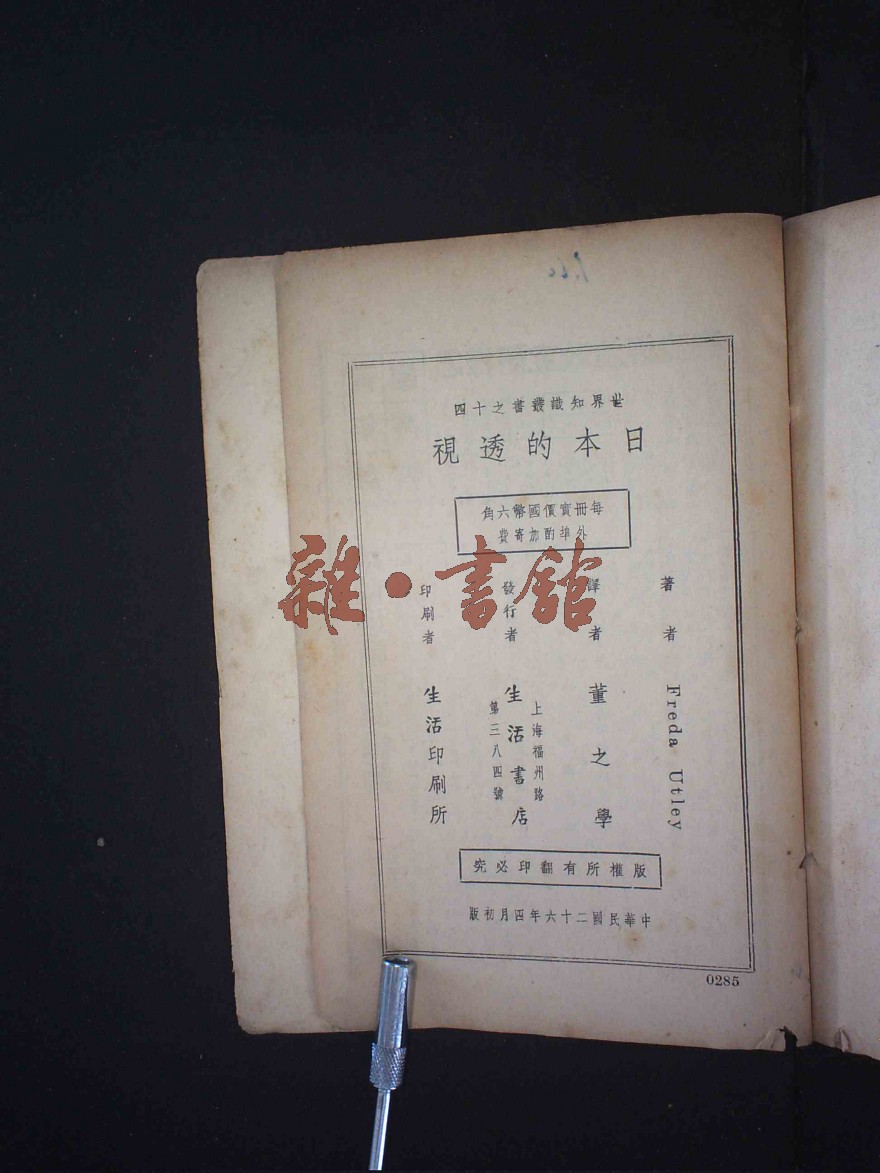 世界知識叢書之十四
日本的透視
每冊實價國幣六角
外埠酌加寄費
著者 Freda Utley
譯者 董之學
發行者 生活書店
上海福州路
第三八四號
印刷者 生活印刷所
版權所有翻印必究
中華民國二十六年四月初版
0285
雜·書館